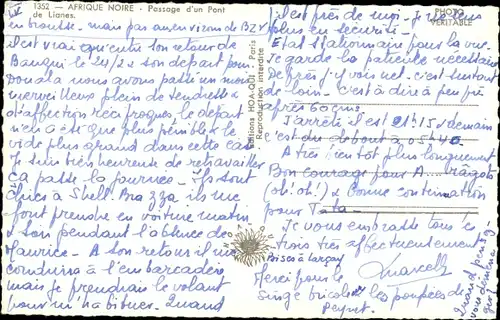 1352 - AFRIQUE NOIRE - Passage d'un Pont
de Lianes.
PHOTO
VÉRITABLE
Editions HOA-QUI - Paris
Reproduction interdite
en brousse. mais pas au environs de BZV
il est vrai qu'entre son retour de
Bangui le 24/2 & son départ pour
Douala nous avons passé un mois
merveilleux plein de tendresse &
d'affection réciproques le départ
n'en a été que plus pénible & le
vide plus grand dans cette case
Je suis très heureuse de retravailler
ça passe la journée. Ils sont
chics à Shell. Brazza ils me
font prendre en voiture matin
& soir pendant l'absence de
Maurice. A son retour il me
conduira à l'embarcadère
mais je prendrai le volant
pour m'habituer. Quand
il est près de moi. Je me sens
plus en sécurité.
Etat stationnaire pour la vue.
Je garde la patience nécessaire
De près j'y vois net. c'est surtout
de loin. c'est à dire à peu près
après 60 cms.
J'arrête il est 21h15 & demain
c'est du debout à 05h40
A très bientôt plus longuement
Bon courage pour
(oh! oh!) & Bonne continuation
pour Tata
Je vous embrasse tous les
trois affectueusement
Bises à
Merci pour le
singe bricoleur les poupées de
Peynet.
Quand
vous